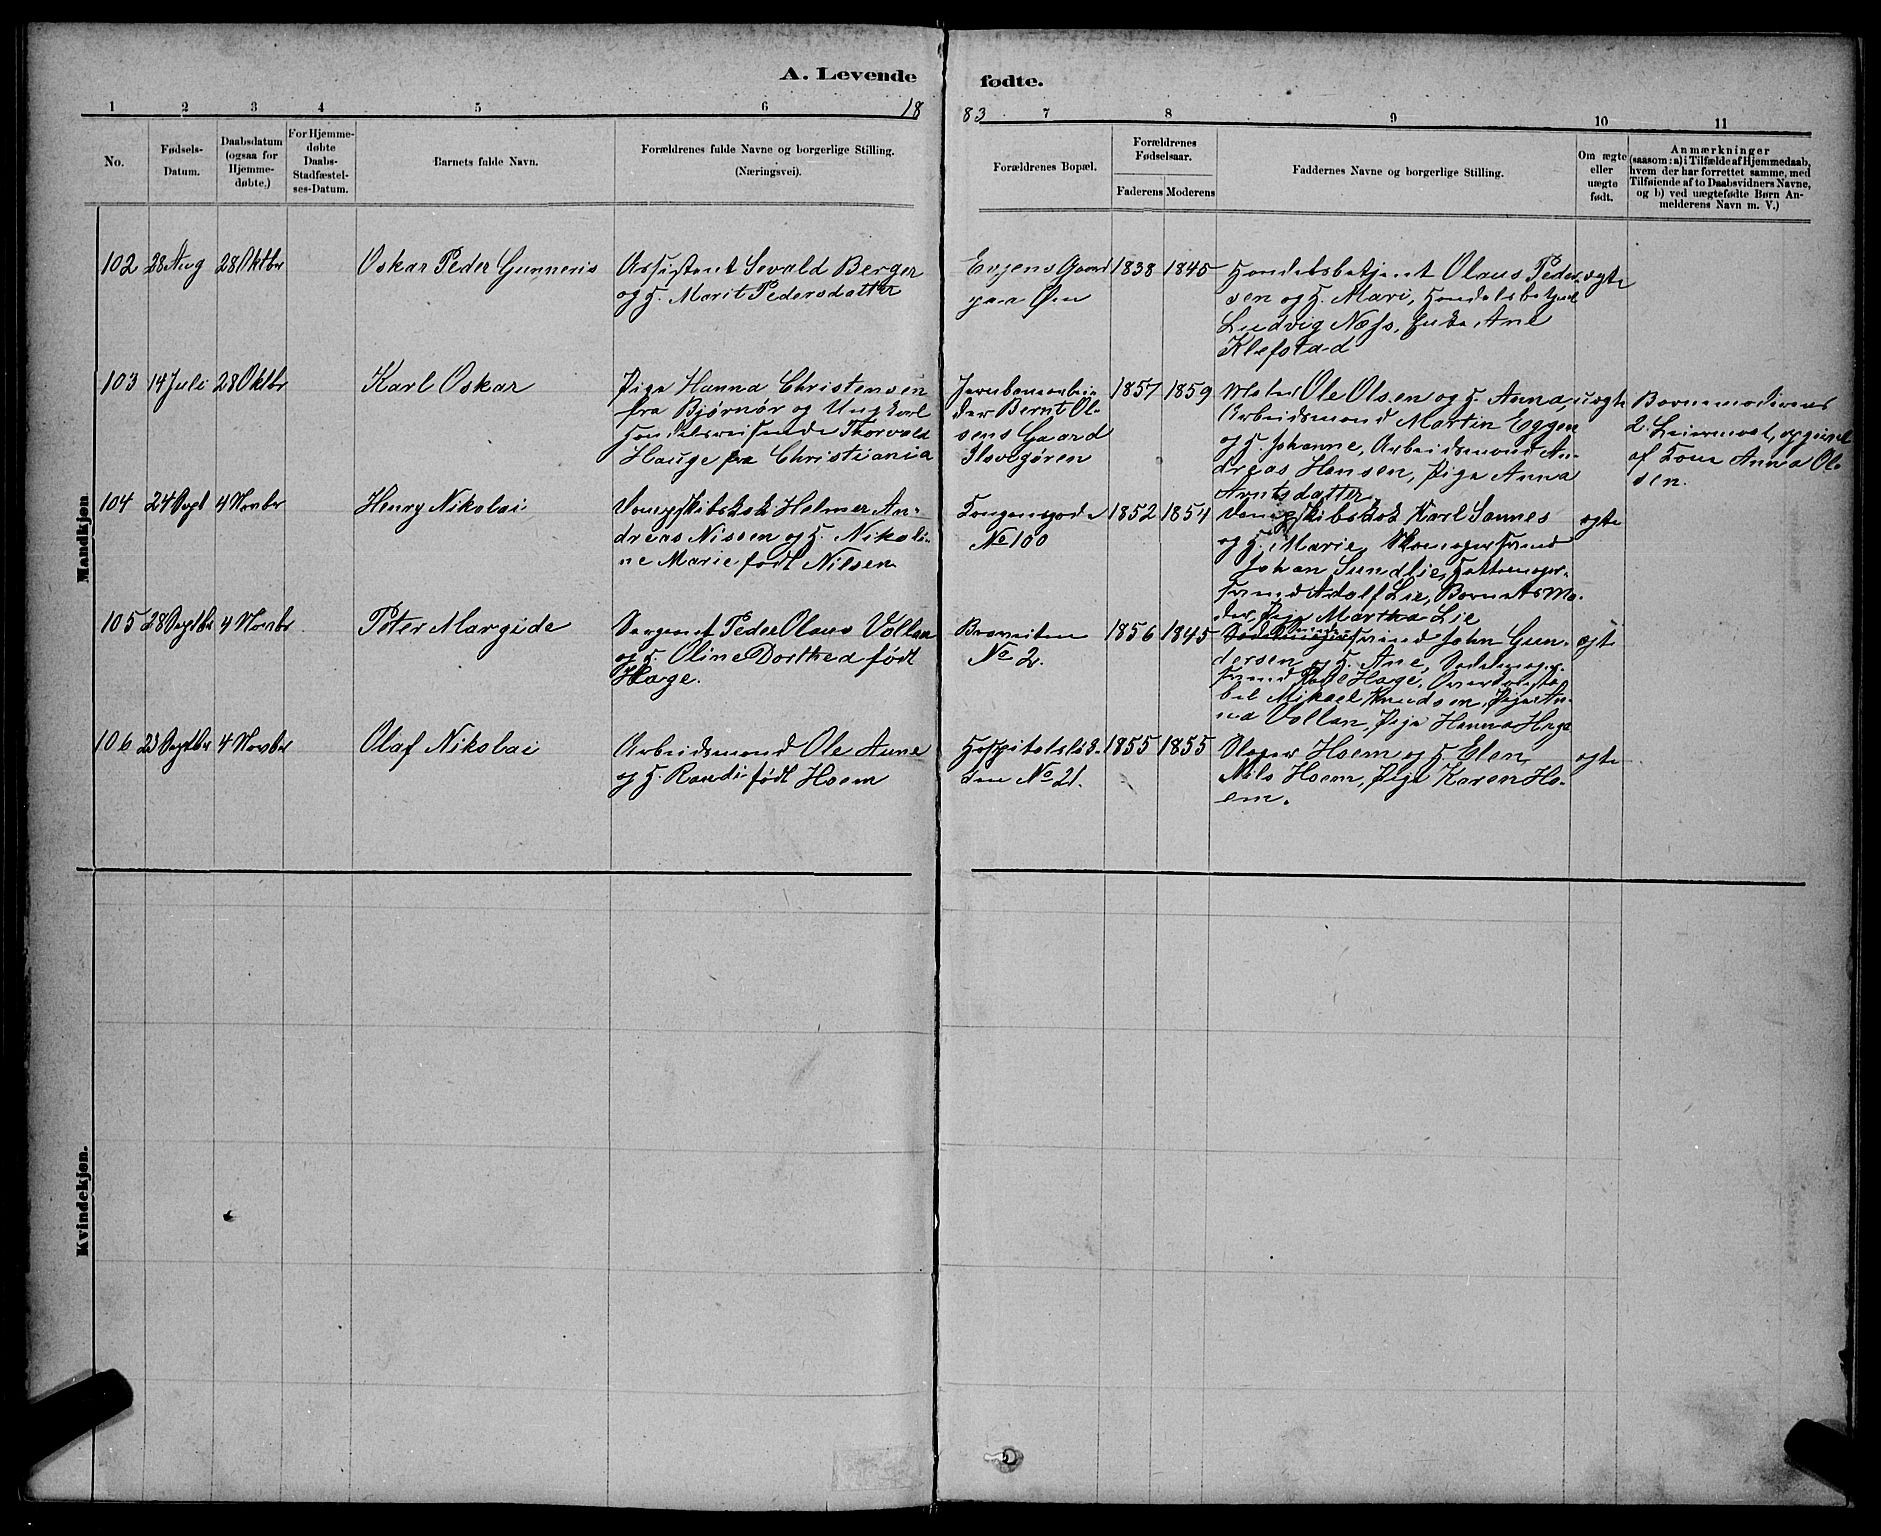 A. Levende fødte.
1 2 3 4 5 6 18 83 7 8 9 10 11
No.
Fødsels-
Datum.
Daabsdatum
(ogsaa for
Hjemme-
døbte.)
For Hjemme-
døbte
Daabs-
Stadfæstel-
ses-Datum.
Barnets fulde Navn.
Forældrenes fulde Navne og borgerlige Stilling.
(Næringsvei).
Forældrenes Bopæl.
Forældrenes
Fødselsaar.
Faderens Moderens
Faddernes Navne og borgerlige Stilling.
Om ægte
eller
uægte
født.
Anmærkninger
(saasom: a) i Tilfælde af Hjemmedaab,
hvem der har forrettet samme, med
Tilføiende af to Daabsvidners Navne,
og b) ved uægtefødte Børn An-
melderens Navn m. V.)
Mandkjøn
102 28 Aug 28 Oktbr
Oskar Peder Gunneris
Assistent Sevald Berger
og H. Marit Pedersdatter
Evjens Gaard
paa Øen
1838 1845
Handelsbetjent Olaus Peder-
sen og H. Mari, Handelsbetjent
Ludvig Næss, Ane
Klefstad
ægte
103 14 Juli 28 Oktbr
Karl Oskar
Pige Hanna Christensen
fra Bjørnør og Ungkarl
Handelsreisende Thorvald
Hauge fra Christiania
Jernbanearbei-
der Bernt Ol-
sens Gaard
Ilsvegøren
1857 1859
Ole Olsen og H. Anna,
Arbeidsmand Martin Eggen
og H. Johanne, Arbeidsmand An-
dreas Hansen, Pige Anna
Arntsdatter.
uægte
Barnemoderens
2. Leiermaal, opgivet
af Anna Ol-
sen.
104 24 Sept 4 Novbr
Henry Nikolai
Dampskibskok Helmer An-
dreas Nissen og H. Nikoli-
ne Marie født Nilsen
No 100
1852 1851
Dampskibskok Karl Sannes
og H. Marie, Skomagersvend
Johan Sundlie, Hattemager-
svend Adolf Lie, Barnets Mo-
der, Pige Martha Lie
ægte
105 28 Septbr 4 Novbr
Peter Margide
Sergeant Peder Olaus Vollan
og H. Oline Dorthea født
Hage.
Braveiten
No 2.
1856 1845
John Gun-
dersen og H. Ane, Sadelmager-
svend Hage, Overkonsta-
bel Mikael Knudsen, Pige An-
na Vollan, Pige Hanna Hage
ægte
106 23 Septbr 4 Novbr
Olaf Nikolai
Arbeidsmand Ole Aune
og H. Randi født Hoem
Hospitalslök-
ken No 21.
1855 1855
Hoem og H. Elen,
Nils Hoem, Pige Karen Ho-
em.
ægte
Kvindekjøn.